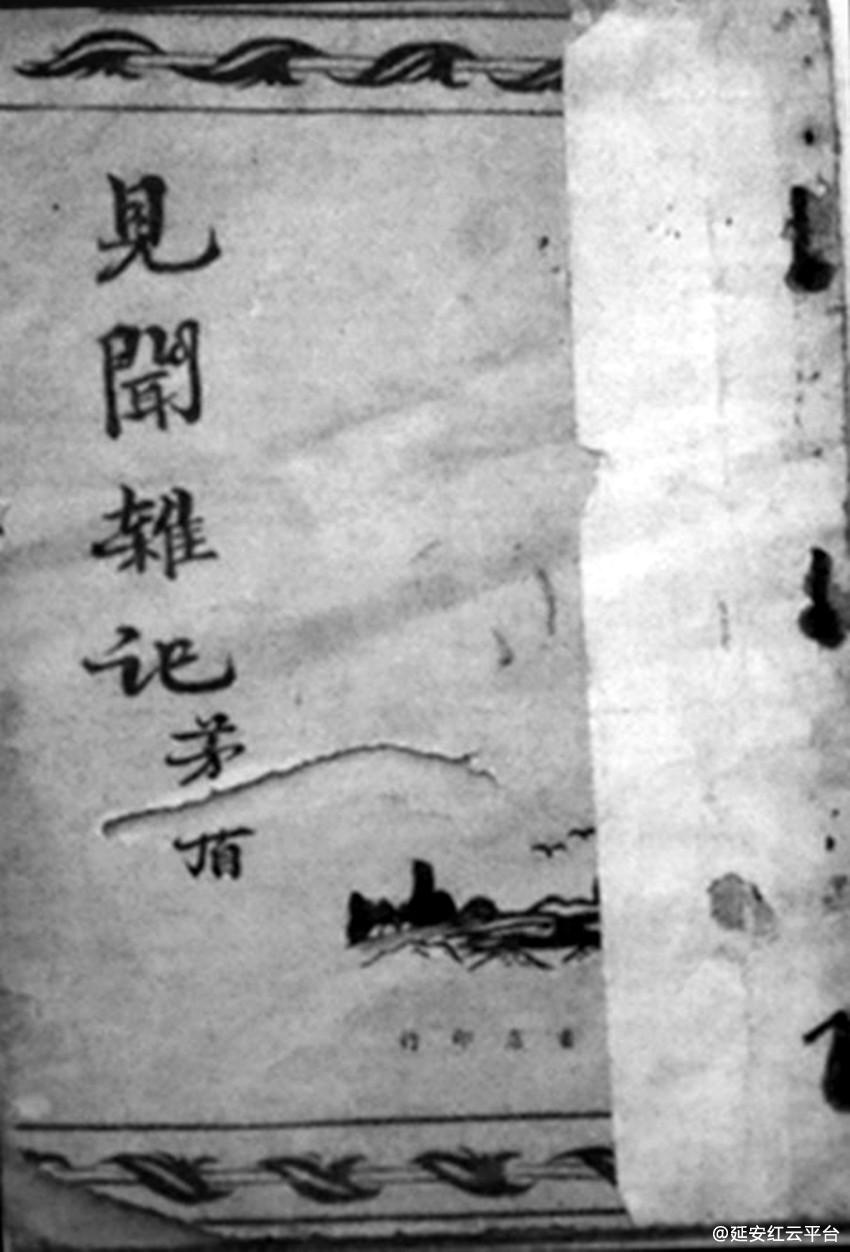 見聞雜記
茅盾
書店印行
@延安红云平台